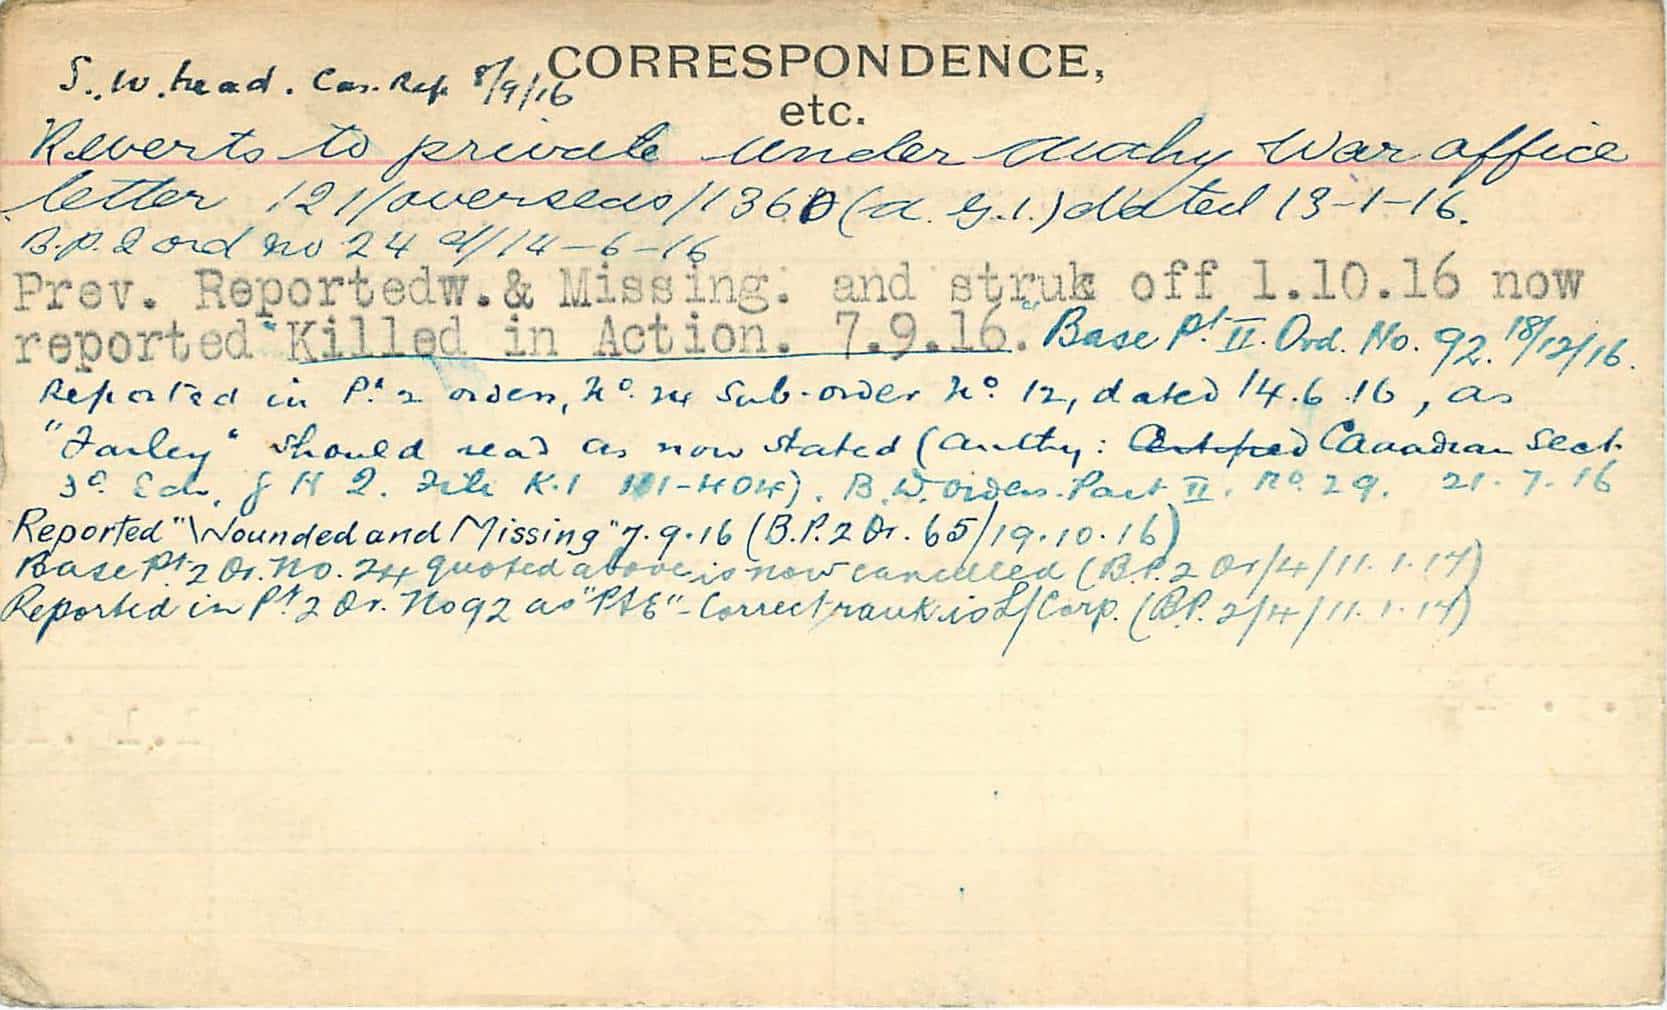 CORRESPONDENCE,
etc.
S. W. head. Cas. Rep. 8/9/16
Reverts to private under authy War office
letter 121/overseas/1360 (A.G.1.) dated 13-1-16.
B.P. 2 ord no 24 d/14-6-16
Prev. Reportedw.& Missing. and struk off 1.10.16 now
reported "Killed in Action. 7.9.16." Base Pt II. Ord. No. 92. 18/12/16.
Reported in Pt 2 orders, No. 24 Sub-order No 12, dated 14.6.16, as
"Farley" should read as now stated (authy: Canadian Sect.
3d Ech, G H Q. File K.1 111-404). B.W. orders. Part II. No. 29. 21.7.16
Reported "Wounded and Missing" 7.9.16 (B.P.2 Or. 65/19.10.16)
Base Pt 2 Or. No. 24 quoted above is now cancelled (B.P.2 Or/4/11.1.17)
Reported in Pt 2 Or. No 92 as "PtE" - Correct rank is L/Corp. (B.P. 2/4/11.1.17)